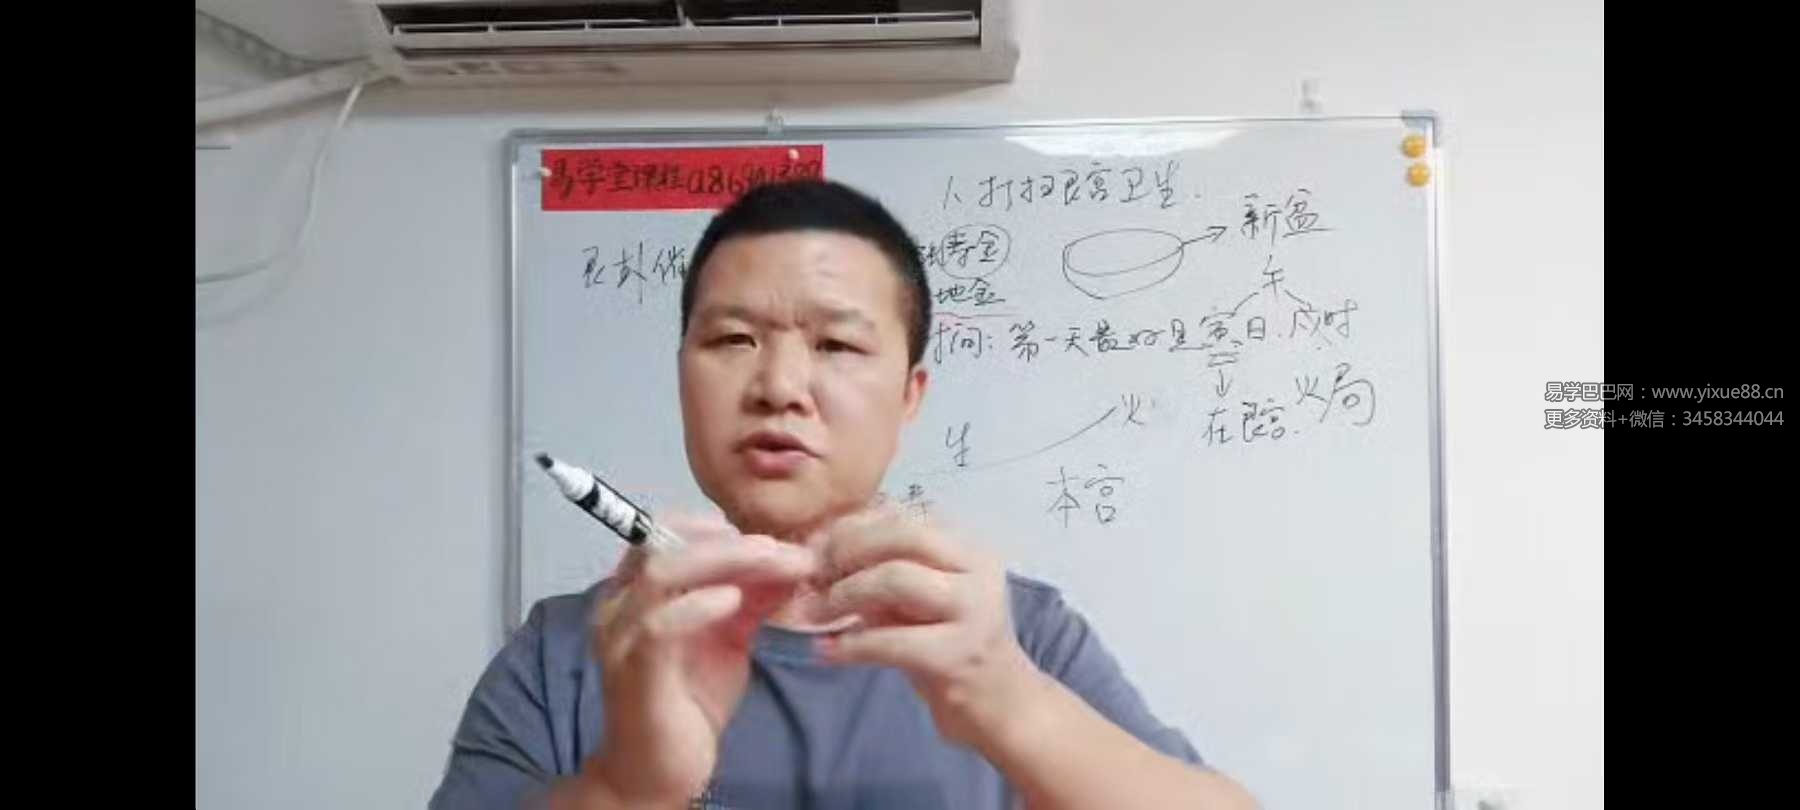 易学堂课程a86
1、打扫艮宫卫生.
新盆
艮卦催
寿金
地金
午
时间：第一天最好是寅日.戌时
火局
在艮宫.
生
火
本宫
寿
易学巴巴网：www.yixue88.cn
更多资料+微信：3458344044